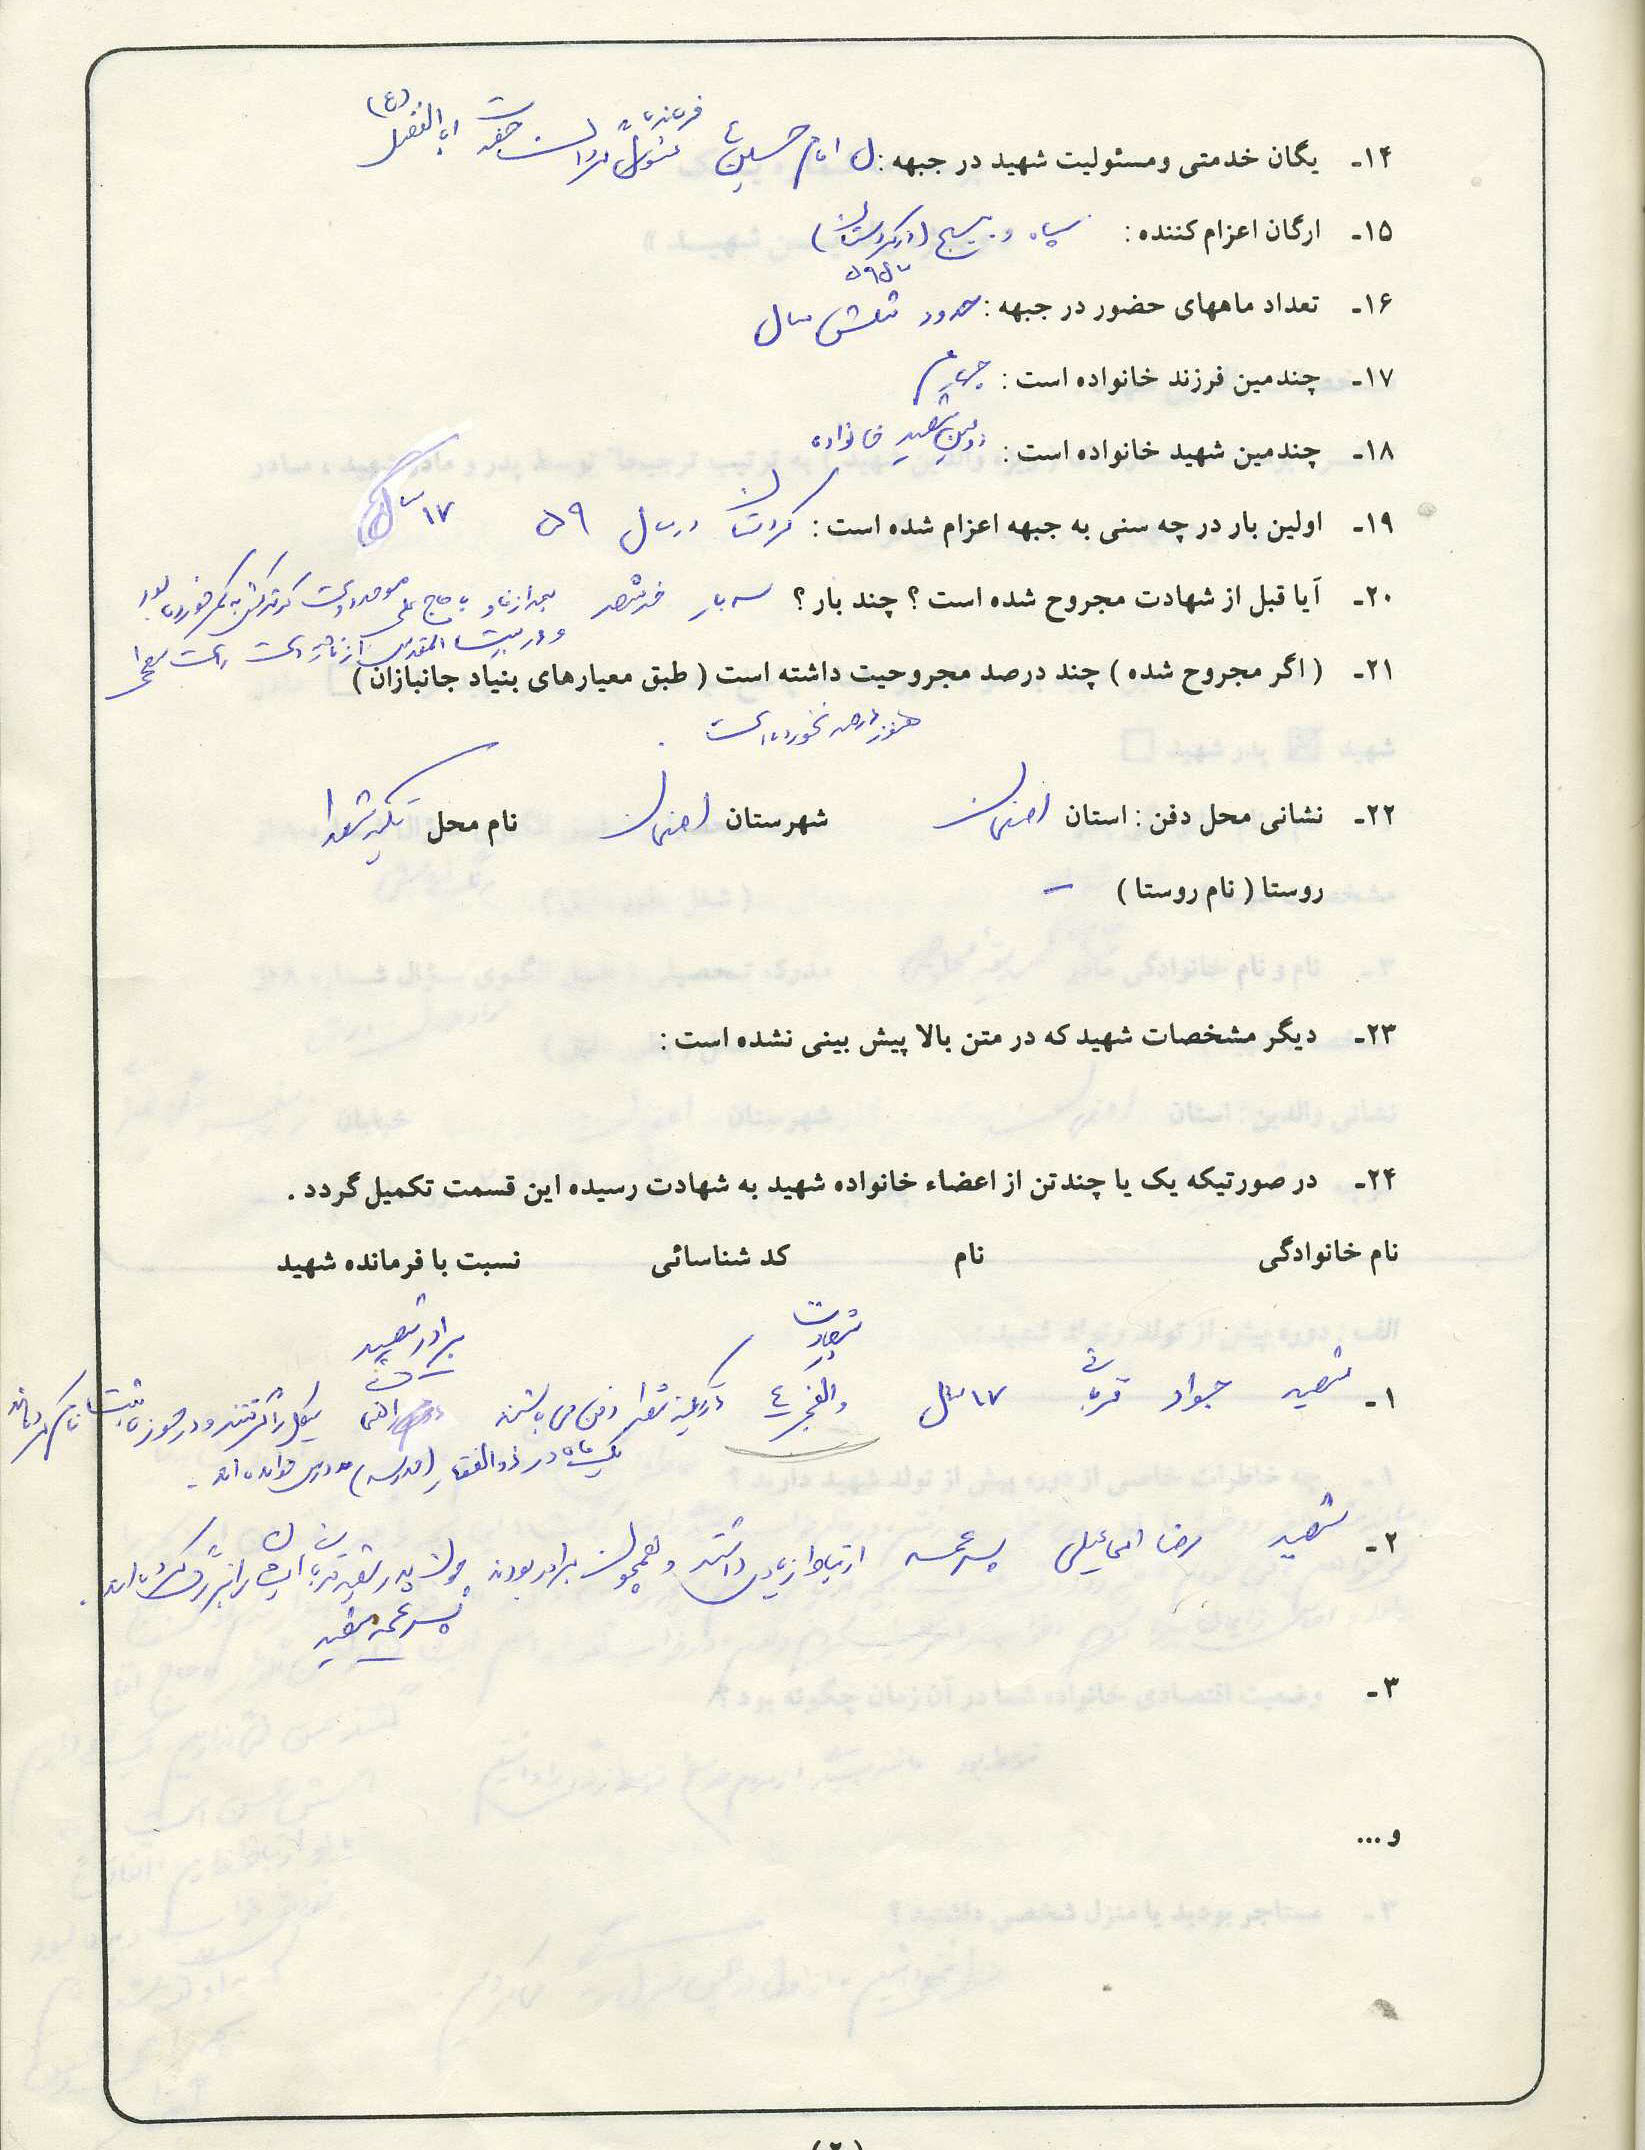 ۱۴- یگان خدمتی ومسئولیت شهید در جبهه : ل امام حسین (ع) فرمانده گردان حضرت ابوالفضل (ع)
۱۵- ارگان اعزام کننده : سپاه و بسیج (از کردستان)
سال ۵۹
۱۶- تعداد ماههای حضور در جبهه : حدود شش سال
۱۷- چندمین فرزند خانواده است : چهارم
۱۸- چندمین شهید خانواده است : دومین شهید خانواده
۱۹- اولین بار در چه سنی به جبهه اعزام شده است : کردستان در سال ۵۹ ۱۷ سالگی
۲۰- آیا قبل از شهادت مجروح شده است ؟ چند بار ؟ سه بار خرمشهر
و در بیت المقدس از ناحیه دست راست
۲۱- ( اگر مجروح شده ) چند درصد مجروحیت داشته است ( طبق معیارهای بنیاد جانبازان )
هنوز درصد نخورده است .
۲۲- نشانی محل دفن : استان اصفهان شهرستان اصفهان نام محل تکیه شهدا
روستا ( نام روستا ) -
۲۳- دیگر مشخصات شهید که در متن بالا پیش بینی نشده است :
۲۴- در صورتیکه یک یا چند تن از اعضاء خانواده شهید به شهادت رسیده این قسمت تکمیل گردد .
نام خانوادگی نام کد شناسائی نسبت با فرمانده شهید
شهادت در برادر شهید
۱- شهید جواد قربانی ۱۷ سال والفجر ۴ در تکیه شهدا دفن می باشند
یک ماه در ذوالفقار (مدرسه) درس خوانده اند .
۲- شهید رضا اسماعیلی پسر عمه ارتباط زیادی داشتند و همچون برادر بودند چون پدر شهید قربانی ایشان را بزرگ کرده اند .
پسر عمه شهید
۳-
و ...
(۲)